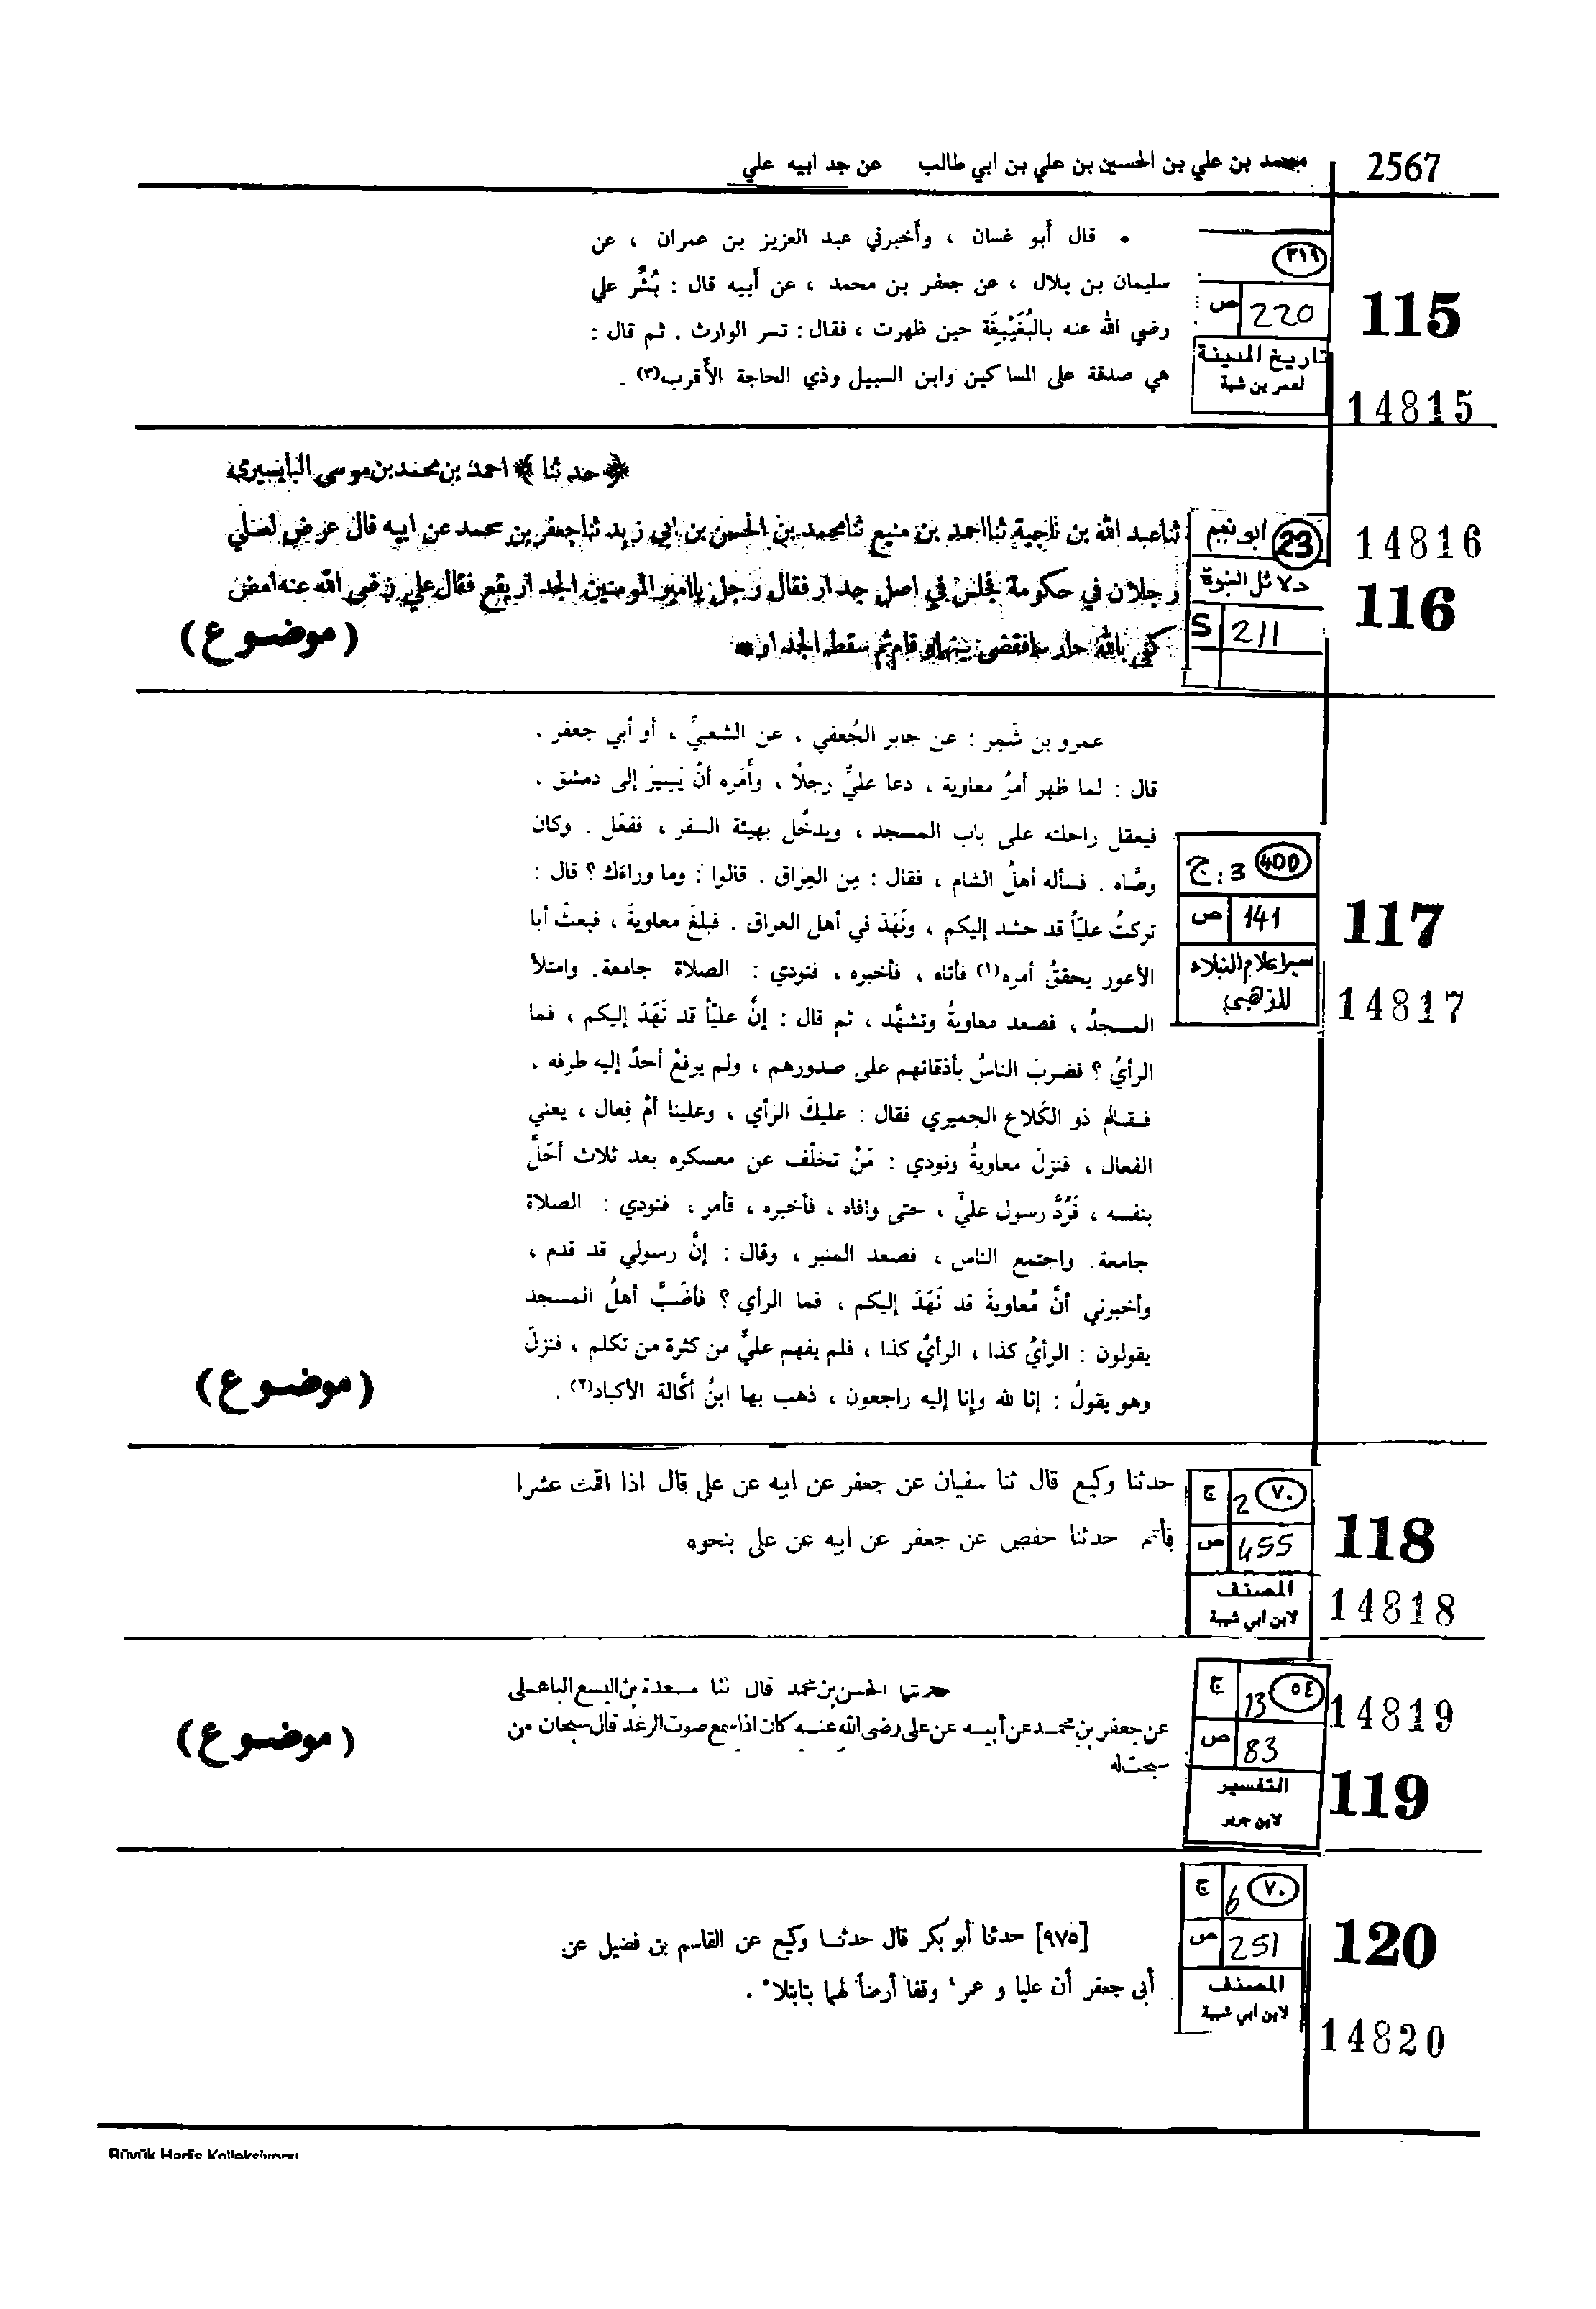 محمد بن علي بن الحسين بن علي بن ابي طالب عن جد ابيه علي 2567
• قال أبو غسان ، وأخبرني عبد العزيز بن عمران ، عن
سليمان بن بلال ، عن جعفر بن محمد ، عن أبيه قال : بُشِّر علي
رضي الله عنه بالبُغَيْبِغَة حين ظهرت ، فقال : تسر الوارث . ثم قال :
هي صدقة على المساكين وابن السبيل وذي الحاجة الأقرب(٣) .
٣١٩
ص 220
تاريخ المدينة
لعمر بن شبة
115
14815
﴿ حدثنا ﴾ احمد بن محمد بن موسى البابسيرى
ثنا عبد الله بن ناجية ثنا احمد بن منيع ثنا محمد بن الحسن بن ابي زيد ثنا جعفر بن محمد عن ابيه قال عرض لعلي
رجلان في حكومة فجلس في اصل جدار فقال رجل يا امير المومنين الجدار يقع فقال علي رضى الله عنه امض
كفى بالله حارسا فقضى بينهما و قام ثم سقط الجدار *
(موضوع)
ابو نعيم 23
دلائل النبوة
S 211
14816
116
عمرو بن شَمِر : عن جابر الجُعفي ، عن الشعبيِّ ، أو أبي جعفر ،
قال : لما ظهر أمرُ معاوية ، دعا عليٌّ رجلًا ، وأَمَره أنْ يَسِيرَ إلى دمشق ،
فيعقل راحلته على باب المسجد ، ويدخُل بهيئة السفر ، ففعَل . وكان
وصَّاه . فسأله أهلُ الشام ، فقال : مِن العِراق . قالوا : وما وراءَك ؟ قال :
تركتُ عليّاً قد حشد إليكم ، ونَهَدَ في أهل العراق . فبلغَ معاويةَ ، فبعثَ أبا
الأعور يحققُ أمره(١) فأتاه ، فأخبره ، فنودي : الصلاة جامعة. وامتلأ
المسجدُ ، فصعد معاويةُ وتشهَّد ، ثم قال : إنَّ عليّاً قد نَهَدَ إليكم ، فما
الرأيُ ؟ فضربَ الناسُ بأذقانهم على صدورهم ، ولم يرفعْ أحدٌ إليه طرفه ،
فقام ذو الكَلاع الحِميري فقال : عليكَ الرأي ، وعلينا أمْ فِعال ، يعني
الفعال ، فنزلَ معاويةُ ونودي : مَنْ تخلَّف عن معسكره بعد ثلاث أحَلَّ
بنفسه ، فَرُدَّ رسول عليٍّ ، حتى وافاه ، فأخبره ، فأمر ، فنودي : الصلاة
جامعة. واجتمع الناس ، فصعد المنبر ، وقال : إنَّ رسولي قد قدم ،
وأخبرني أنَّ مُعاويةَ قد نَهَدَ إليكم ، فما الرأي ؟ فأضَبَّ أهلُ المسجد
يقولون : الرأيُ كذا ، الرأيُ كذا ، فلم يفهم عليٌّ من كثرة من تكلم ، فنزلَ
وهو يقولُ : إنا لله وإنا إليه راجعون ، ذهب بها ابنُ أكَّالة الأكباد(٢) .
(موضوع)
400 ج: 3
ص 141
سير اعلام النبلاء
للذهبي
117
14817
حدثنا وكيع قال ثنا سفيان عن جعفر عن ابيه عن على قال اذا اقمت عشرا
فأتم حدثنا حفص عن جعفر عن ابيه عن على بنحوه
ج 2 ٧٠
ص 455
المصنف
لابن ابي شيبة
118
14818
حدثنا الحسن بن محمد قال ثنا مسعدة بن اليسع الباهلى
عن جعفر بن محمد عن أبيه عن على رضى الله عنه كان اذا سمع صوت الرعد قال سبحان من
سبحت له
(موضوع)
ج 13 ٥٤
ص 83
التفسير
لابن جرير
14819
119
[٩٧٥] حدثنا أبو بكر قال حدثنا وكيع عن القاسم بن فضيل عن
أبي جعفر أن عليا و عمر٤ وقفا أرضاً لهما بتابتلا٥ .
ج 6 ٧٠
ص 251
المصنف
لابن ابي شيبة
120
14820
Büyük Hadis Kolleksiyonu